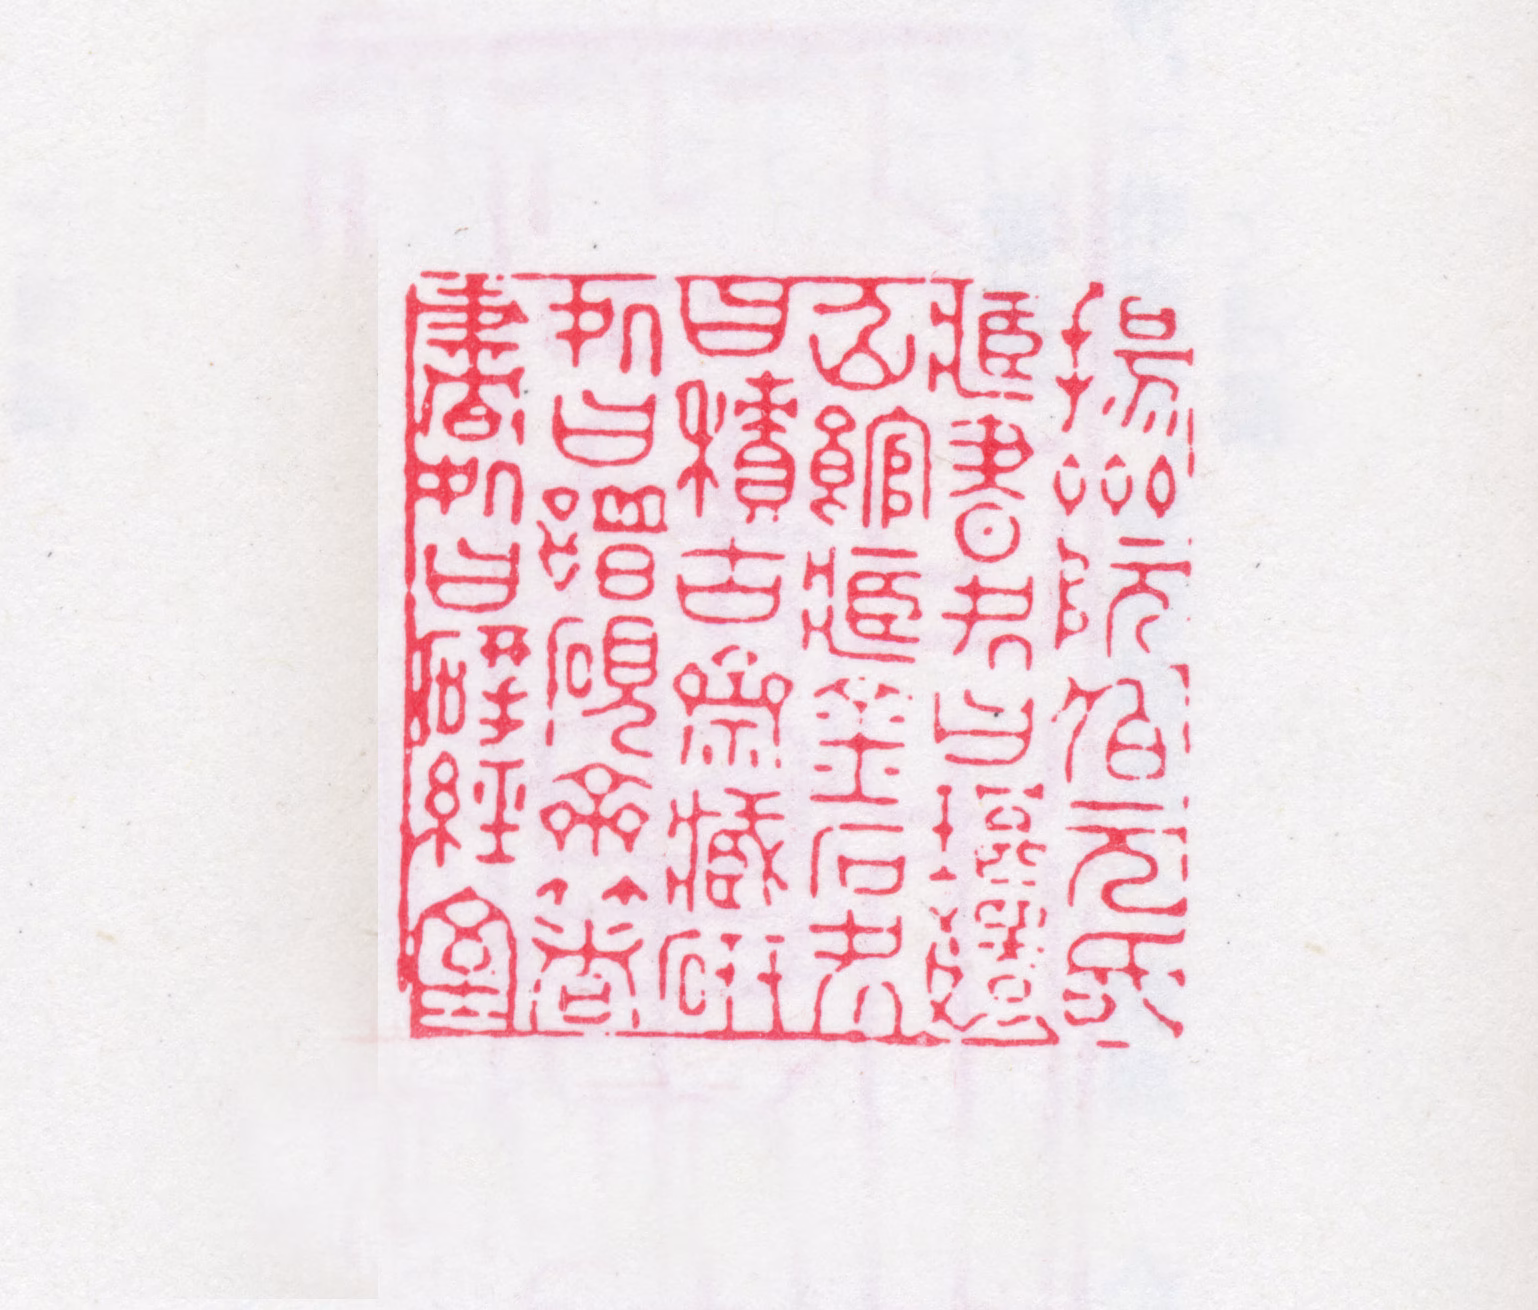 揚州阮伯元氏
藏書処曰琅嬛
仙館藏金石処
曰積古齋藏研
処曰譜硯齋著
書処曰揅經室